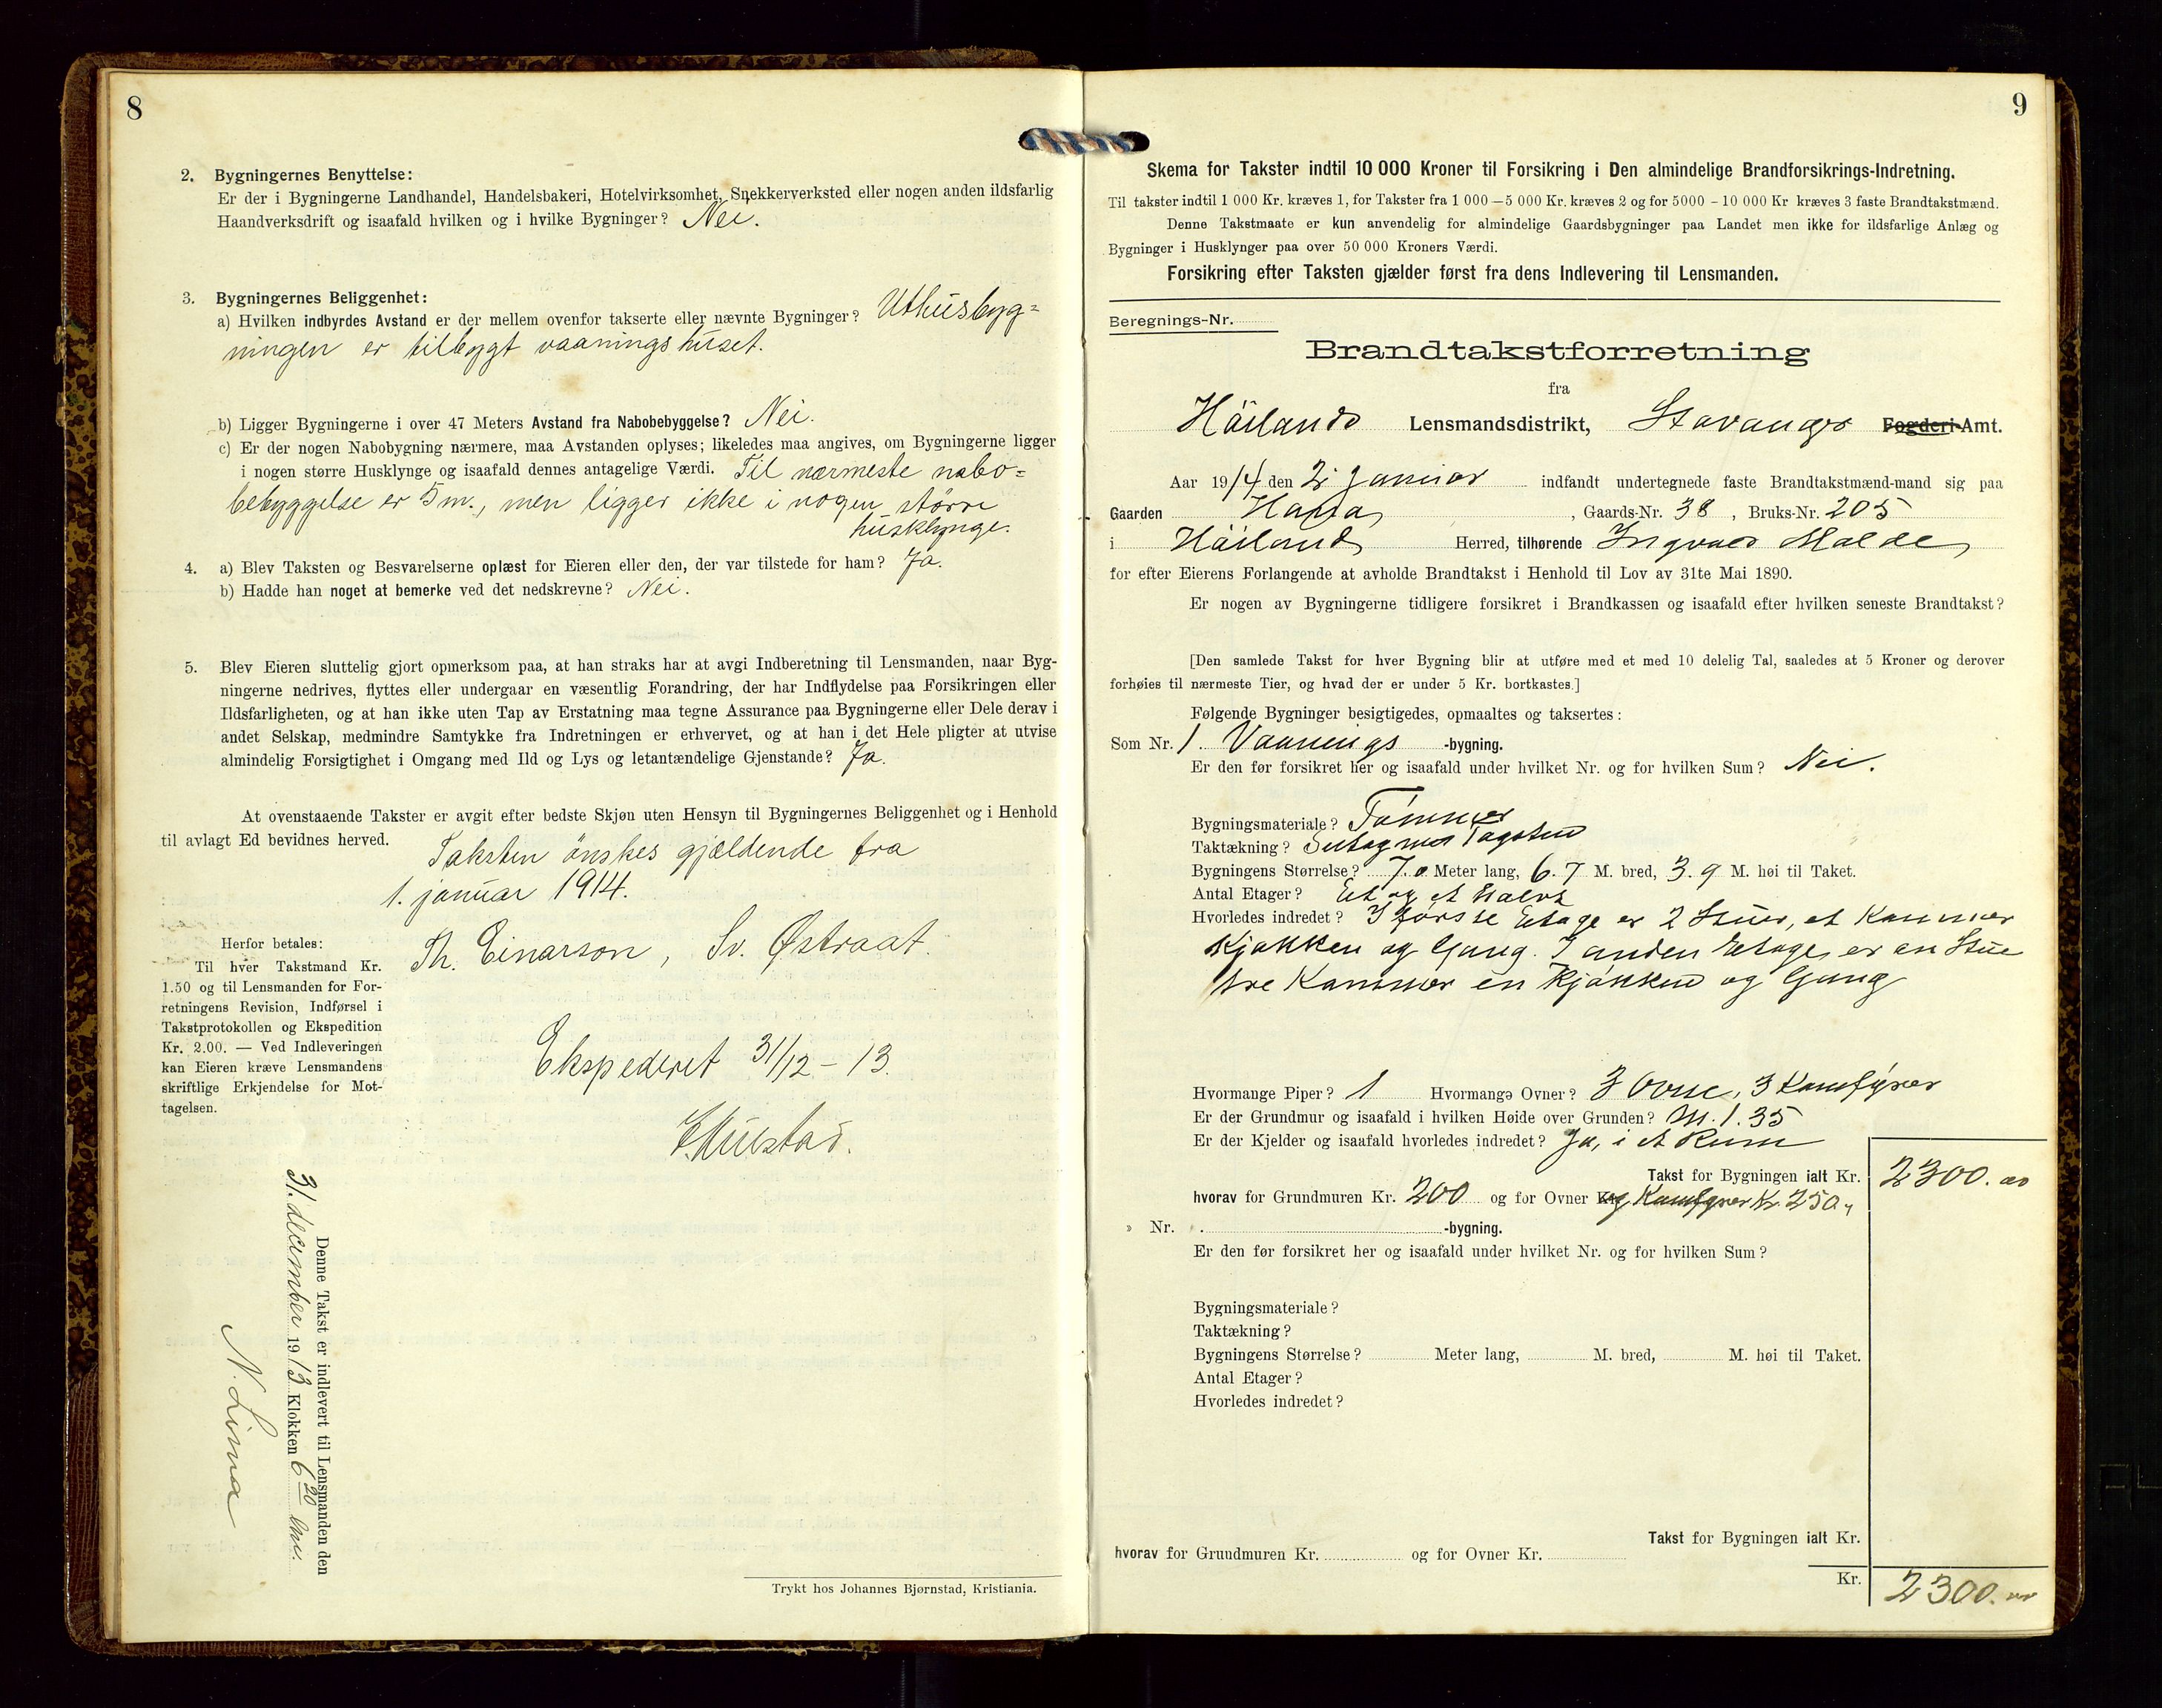 8
2. Bygningernes Benyttelse:
Er der i Bygningerne Landhandel, Handelsbakeri, Hotelvirksomhet, Snekkerverksted eller nogen anden ildsfarlig
Haandverksdrift og isaafald hvilken og i hvilke Bygninger? Nei.
3. Bygningernes Beliggenhet:
a) Hvilken indbyrdes Avstand er der mellem ovenfor takserte eller nævnte Bygninger? Uthusbyg=
ningen er tilbyggt vaaningshuset.
b) Ligger Bygningerne i over 47 Meters Avstand fra Nabobebyggelse? Nei.
c) Er der nogen Nabobygning nærmere, maa Avstanden oplyses; likeledes maa angives, om Bygningerne ligger
i nogen større Husklynge og isaafald dennes antagelige Værdi. Til nærmeste nabo=
bebyggelse er 5 m., men ligger ikke i nogen större
husklynge.
4. a) Blev Taksten og Besvarelserne oplæst for Eieren eller den, der var tilstede for ham? Ja.
b) Hadde han noget at bemerke ved det nedskrevne? Nei.
5. Blev Eieren sluttelig gjort opmerksom paa, at han straks har at avgi Indberetning til Lensmanden, naar Byg-
ningerne nedrives, flyttes eller undergaar en væsentlig Forandring, der har Indflydelse paa Forsikringen eller
Ildsfarligheten, og at han ikke uten Tap av Erstatning maa tegne Assurance paa Bygningerne eller Dele derav i
andet Selskap, medmindre Samtykke fra Indretningen er erhvervet, og at han i det Hele pligter at utvise
almindelig Forsigtighet i Omgang med Ild og Lys og letantændelige Gjenstande? Ja.
At ovenstaaende Takster er avgit efter bedste Skjøn uten Hensyn til Bygningernes Beliggenhet og i Henhold
til avlagt Ed bevidnes herved.
Taksten önskes gjældende fra
1. januar 1914.
Th. Einarson, Sv. Østraat.
Herfor betales:
Til hver Takstmand Kr.
1.50 og til Lensmanden for For-
retningens Revision, Indførsel i
Takstprotokollen og Ekspedition
Kr. 2.00. — Ved Indleveringen
kan Eieren kræve Lensmandens
skriftlige Erkjendelse for Mot-
tagelsen.
Ekspederet 31/12 - 13.
Denne Takst er indlevert til Lensmanden den
31. december 1913 Klokken 6 20 em.
N. Lima
Trykt hos Johannes Bjørnstad, Kristiania.
9
Skema for Takster indtil 10 000 Kroner til Forsikring i Den almindelige Brandforsikrings-Indretning.
Til takster indtil 1 000 Kr. kræves 1, for Takster fra 1 000 — 5 000 Kr. kræves 2 og for 5000 - 10 000 Kr kræves 3 faste Brandtakstmænd.
Denne Takstmaate er kun anvendelig for almindelige Gaardsbygninger paa Landet men ikke for ildsfarlige Anlæg og
Bygninger i Husklynger paa over 50 000 Kroners Værdi.
Forsikring efter Taksten gjælder først fra dens Indlevering til Lensmanden.
Beregnings-Nr.
Brandtakstforretning
fra
Höiland Lensmandsdistrikt, Stavanger Fogderi-Amt.
Aar 1914 den 2 Januar indfandt undertegnede faste Brandtakstmænd-mand sig paa
Gaarden Hana, Gaards-Nr. 38, Bruks-Nr. 205
i Höiland Herred, tilhørende Ingvald Malde
for efter Eierens Forlangende at avholde Brandtakst i Henhold til Lov av 31te Mai 1890.
Er nogen av Bygningerne tidligere forsikret i Brandkassen og isaafald efter hvilken seneste Brandtakst?
[Den samlede Takst for hver Bygning blir at utføre med et med 10 delelig Tal, saaledes at 5 Kroner og derover
forhøies til nærmeste Tier, og hvad der er under 5 Kr. bortkastes.]
Følgende Bygninger besigtigedes, opmaaltes og taksertes:
Som Nr. 1. Vaanings -bygning.
Er den før forsikret her og isaafald under hvilket Nr. og for hvilken Sum? Nei.
Bygningsmateriale? Tömmer
Taktækning? Tagsten
Bygningens Størrelse? 7.0 Meter lang, 6.7 M. bred, 3.9 M. høi til Taket.
Antal Etager? Et og et Halvt
Hvorledes indredet? I förste Etage er 2 Stuer, et Kammer
Kjökken og Gang. I anden Etage er en Stue
tre Kammer en Kjökken og Gang
Hvormange Piper? 1 Hvormange Ovner? 3 Ovne, 3 Komfyrer
Er der Grundmur og isaafald i hvilken Høide over Grunden? M. 1.35
Er der Kjelder og isaafald hvorledes indredet? Ja, i et Rum
Takst for Bygningen ialt Kr. 2300.00
hvorav for Grundmuren Kr. 200 og for Ovner Kr. og Komfyrer Kr. 250,
» Nr. . -bygning.
Er den før forsikret her og isaafald under hvilket Nr. og for hvilken Sum?
Bygningsmateriale?
Taktækning?
Bygningens Størrelse? Meter lang, M. bred, M. høi til Taket.
Antal Etager?
Hvorledes indredet?
Takst for Bygningen ialt Kr.
hvorav for Grundmuren Kr. og for Ovner Kr.
Kr. 2300.00